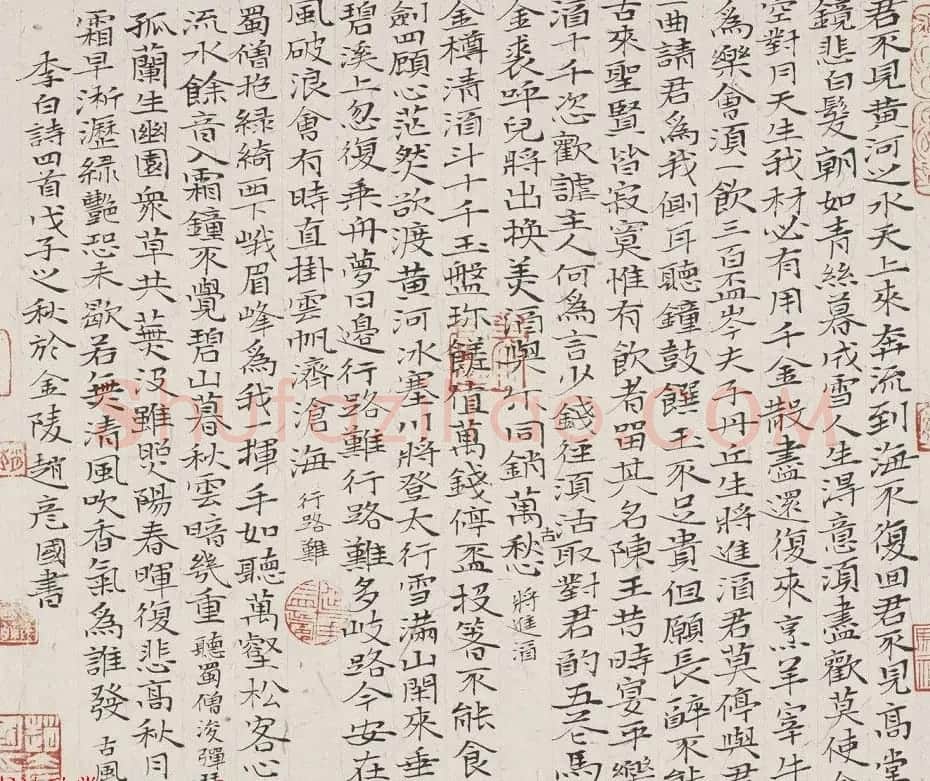 君不見黃河之水天上來奔流到海不復回君不見高堂
鏡悲白髮朝如青絲暮成雪人生得意須盡歡莫使
空對月天生我材必有用千金散盡還復來烹羊宰牛
為樂會須一飲三百盃岑夫子丹丘生將進酒君莫停與君
一曲請君為我側耳聽鐘鼓饌玉不足貴但願長醉不
古來聖賢皆寂寞惟有飲者留其名陳王昔時宴平樂
酒千千恣歡謔主人何為言少錢徑須沽取對君酌五花馬
金裘呼兒將出換美酒與爾同銷萬古愁 將進酒
金樽清酒斗十千玉盤珍饈值萬錢停盃投箸不能食
劍四顧心茫然欲渡黃河冰塞川將登太行雪滿山閑來垂
碧溪上忽復乘舟夢日邊行路難行路難多岐路今安在
風破浪會有時直掛雲帆濟滄海 行路難
蜀僧抱綠綺西下峨眉峰為我揮手如聽萬壑松客心
流水餘音入霜鐘不覺碧山暮秋雲暗幾重 聽蜀僧浚彈琴
孤蘭生幽園眾草共蕪沒雖照陽春暉復悲高秋月
霜早淅瀝綠艷恐未歇若無清風吹香氣為誰發 古風
李白詩四首戊子之秋於金陵趙彥國書
Shufaziliao.COM